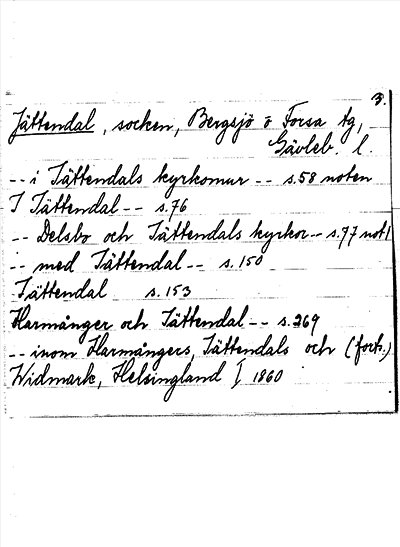 3.
Jättendal, socken, Bergsjö o Forsa tg,
Gävleb. l.
-- i Jättendals kyrkomur -- s.58 noten
I Jättendal -- s.76
-- Delsbo och Jättendals kyrkor -- s.77 not 1
-- med Jättendal -- s.150
Jättendal s.153
Harmånger och Jättendal -- s.269
-- inom Harmångers, Jättendals och (forts.)
Widmark, Helsingland I 1860